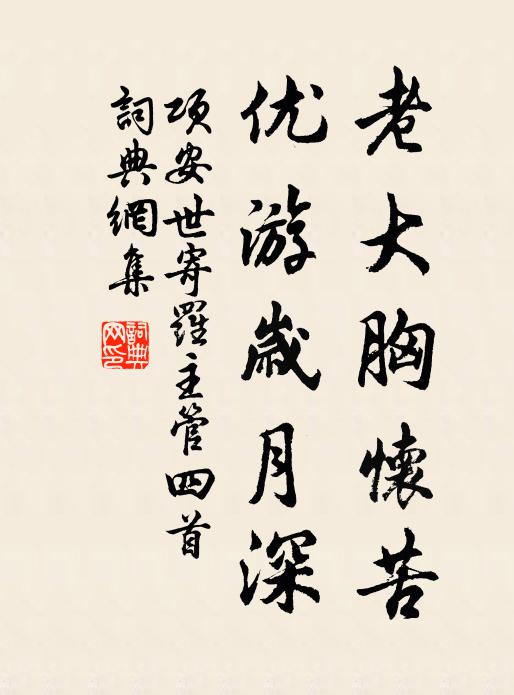 老大胸懷苦
优游歲月深
项安世寄羅主管四首
詞典網集
詞典网印